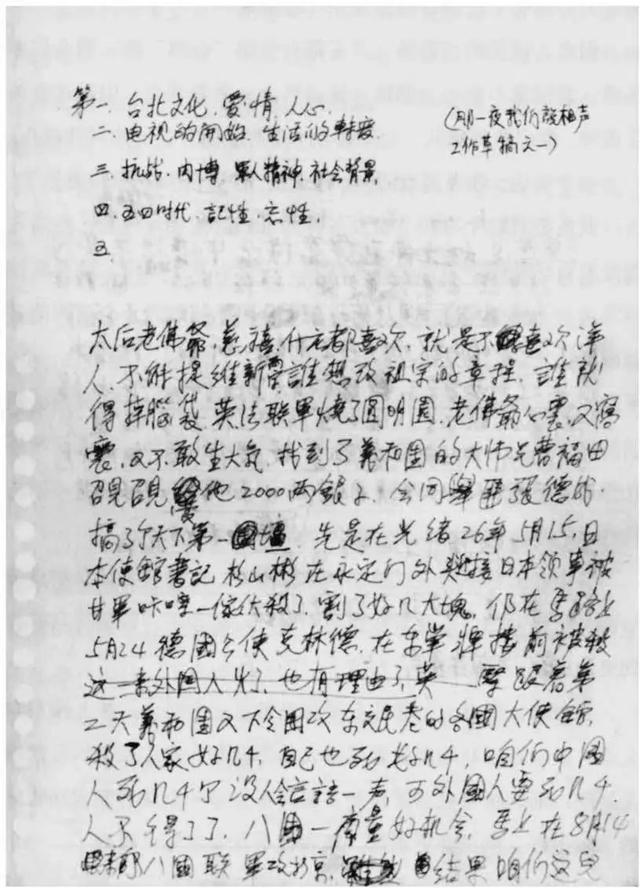 第一. 台北文化. 爱情 人心.
二. 电视的開始. 生活的轉变
三. 抗战. 内 軍人精神. 社会背景
四. 五四时代. 記性. 忘性.
五
(那一夜我们說相声
工作草稿之一)
太后老佛爺, 慈禧, 什么都喜欢, 就是不喜欢洋
人, 不能提維新, 誰想改祖宗的章程, 誰就
得掉腦袋, 英法联軍燒了圆明园, 老佛爺心裏又窩
囊, 又不敢生大气, 找到了義和团的大师兄曹福田
他2000两銀子, 会同 張德成
搞了个天下第一壇. 先是在光緒26年5月15日
本使館書記杉山彬在永定门外迎接日本領事被
甘軍咔嚓一傢伙殺了, 割了好几大塊, 仍在馬路上
5月24 德國公使克林德, 在东单牌楼前被殺
这一来外国人火了, 也有理由了, 英 第
二天義和團又下令围攻东交民巷的各國大使館,
殺了人家好几千, 自己也死好几千, 咱们中國
人死几千个没人会言語一声, 可外國人要死几千
人不得了了, 八國一商量好机会, 馬上在8月14
八國联軍攻 京, 結果咱们这兒